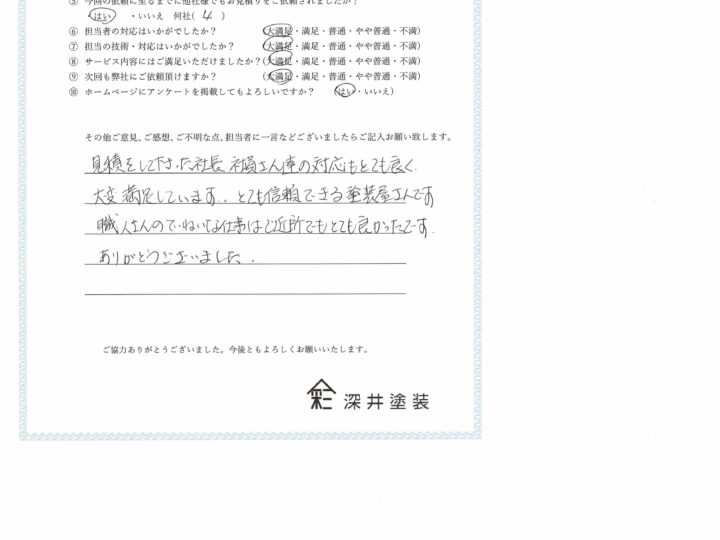 ⑤ 今回の依頼に至るまでに他社様でもお見積りをご依頼されましたか？
（はい ・いいえ 何社( 4 )
⑥ 担当者の対応はいかがでしたか？ (大満足・満足・普通・やや普通・不満)
⑦ 担当の技術・対応はいかがでしたか？ (大満足・満足・普通・やや普通・不満)
⑧ サービス内容にはご満足いただけましたか？(大満足・満足・普通・やや普通・不満)
⑨ 次回も弊社にご依頼頂けますか？ (大満足・満足・普通・やや普通・不満)
⑩ ホームページにアンケートを掲載してもよろしいですか？ (はい・いいえ)
その他ご意見、ご感想、ご不明な点、担当者に一言などございましたらご記入お願い致します。
見積をして下さった社長 社員さん達の対応もとても良く
大変満足しています。とても信頼できる塗装屋さんです
職人さんのていねいな仕事はご近所でもとても良かったです。
ありがとうございました。
ご協力ありがとうございました。今後ともよろしくお願いいたします。
深井塗装